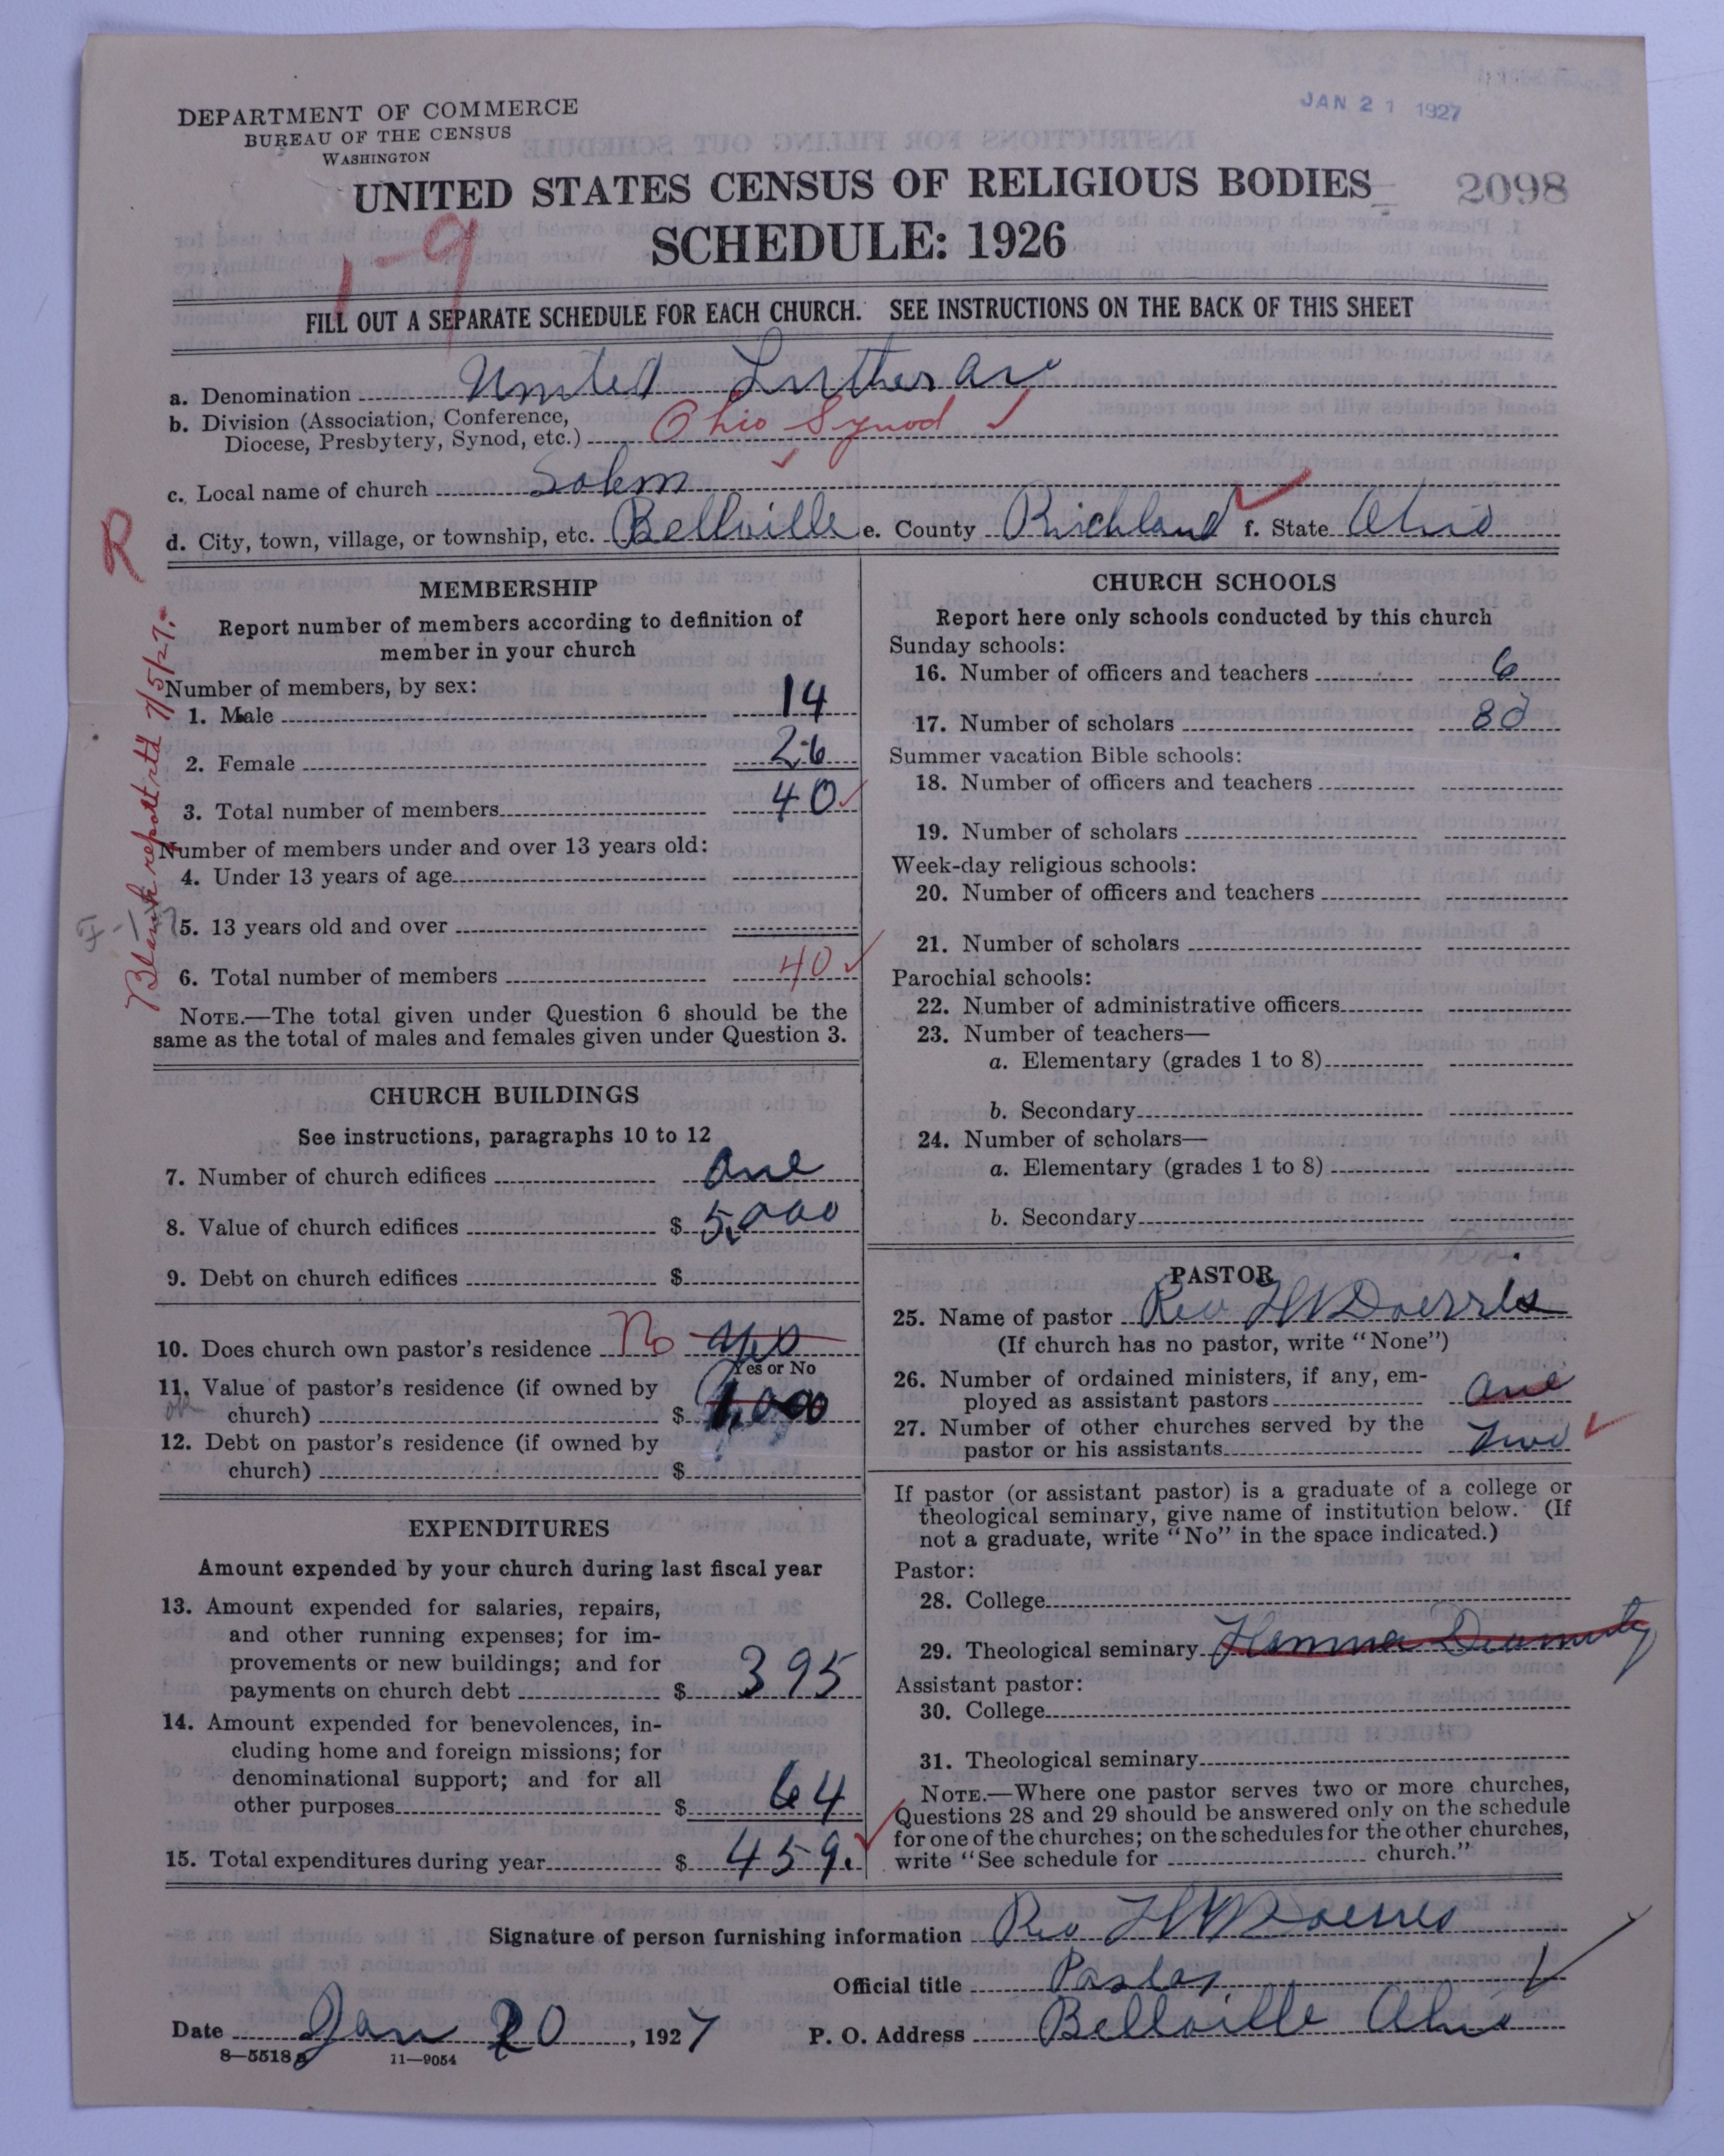 JAN 21 1927
DEPARTMENT OF COMMERCE
BUREAU OF THE CENSUS
WASHINGTON
UNITED STATES CENSUS OF RELIGIOUS BODIES
2098
SCHEDULE: 1926
1-9
FILL OUT A SEPARATE SCHEDULE FOR EACH CHURCH. SEE INSTRUCTIONS ON THE BACK OF THIS SHEET
a. Denomination United Lutheran
b. Division (Association, Conference,
Diocese, Presbytery, Synod, etc.) Ohio Synod ✓
c. Local name of church Salem ✓
d. City, town, village, or township, etc. Bellville e. County Richland ✓ f. State Ohio
R
Blank report rtd 7/5/27.
MEMBERSHIP
Report number of members according to definition of
member in your church
Number of members, by sex:
1. Male 14
2. Female 26
3. Total number of members 40 ✓
Number of members under and over 13 years old:
4. Under 13 years of age
5. 13 years old and over
6. Total number of members 40 ✓
NOTE.—The total given under Question 6 should be the
same as the total of males and females given under Question 3.
CHURCH BUILDINGS
See instructions, paragraphs 10 to 12
7. Number of church edifices One
8. Value of church edifices $ 5,000
9. Debt on church edifices $
10. Does church own pastor's residence No yes
Yes or No
11. Value of pastor's residence (if owned by
church) $
12. Debt on pastor's residence (if owned by
church) $
EXPENDITURES
Amount expended by your church during last fiscal year
13. Amount expended for salaries, repairs,
and other running expenses; for im-
provements or new buildings; and for
payments on church debt $ 395
14. Amount expended for benevolences, in-
cluding home and foreign missions; for
denominational support; and for all
other purposes $ 64
15. Total expenditures during year $ 459. ✓
CHURCH SCHOOLS
Report here only schools conducted by this church
Sunday schools:
16. Number of officers and teachers 6
17. Number of scholars 80
Summer vacation Bible schools:
18. Number of officers and teachers
19. Number of scholars
Week-day religious schools:
20. Number of officers and teachers
21. Number of scholars
Parochial schools:
22. Number of administrative officers
23. Number of teachers—
a. Elementary (grades 1 to 8)
b. Secondary
24. Number of scholars—
a. Elementary (grades 1 to 8)
b. Secondary
PASTOR
25. Name of pastor Rev
(If church has no pastor, write "None")
26. Number of ordained ministers, if any, em-
ployed as assistant pastors one
27. Number of other churches served by the
pastor or his assistants two ✓
If pastor (or assistant pastor) is a graduate of a college or
theological seminary, give name of institution below. (If
not a graduate, write "No" in the space indicated.)
Pastor:
28. College
29. Theological seminary Hamma Divinity
Assistant pastor:
30. College
31. Theological seminary
NOTE.—Where one pastor serves two or more churches,
Questions 28 and 29 should be answered only on the schedule
for one of the churches; on the schedules for the other churches,
write "See schedule for church."
Signature of person furnishing information Rev
Official title Pastor
Date Jan 20, 1927 P. O. Address Bellville Ohio
8—5518a 11—9054